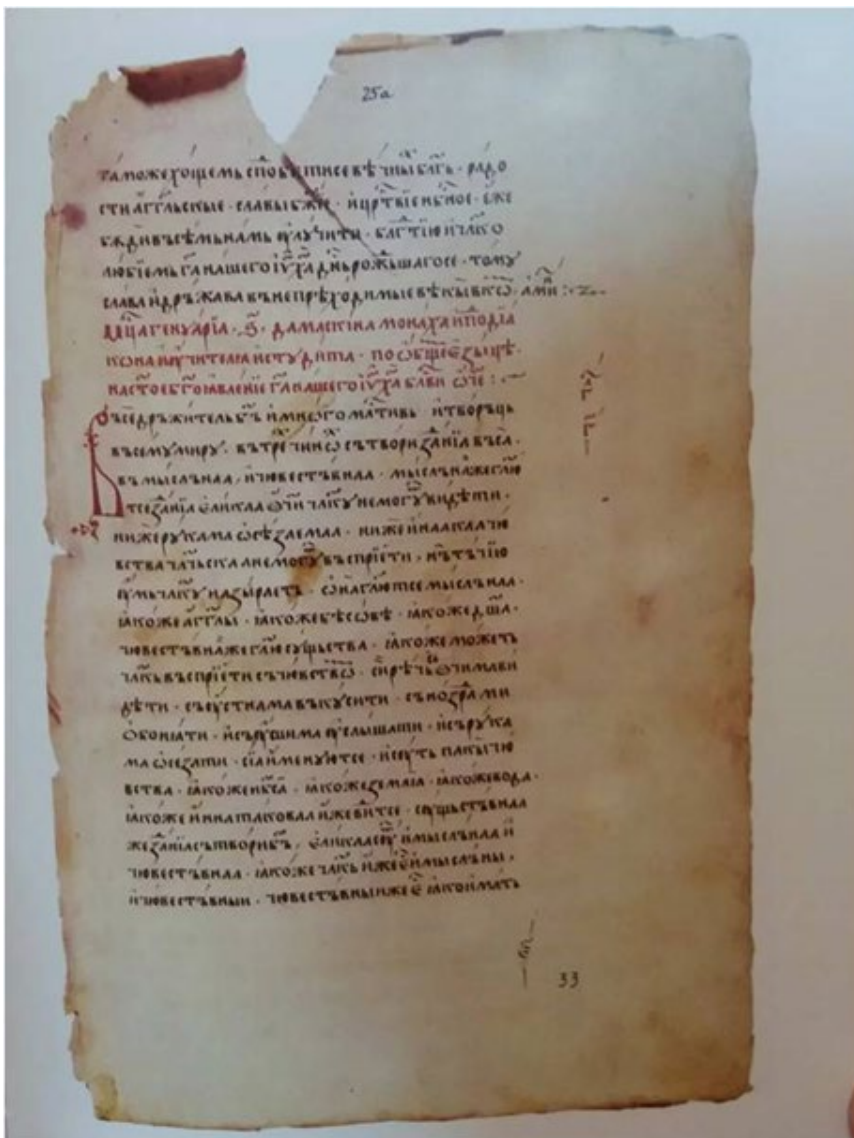 25а
таможехощемь сп͠обитисевѣчны͠ бл͠гь · радо
сти а͠гг͠льскые · славы б͠жїе · и цр͠твїе нб͠ное · еже
бꙋди въсѣмь намь ꙋлꙋчити · бл͠гтїю и чл͠ко
любїемь г͠а нашего і͠у х͠а д͠нь рождьшагосе · томꙋ
слава и дрьжава въ непрѣходимые вѣкы вѣкѡ͠ · ами͠ :
м͠ца генꙋарїа · ѕ͠ · дамаскіна монаха ѵподіа
кона и ꙋчителꙗ и стꙋдита · по ѡбщеє езыцѣ ·
на с͠тое б͠гоꙗвленїе г͠а нашего і͠у х͠а бл͠ви ѡ͠че :
въседрьжитель б͠ъ и мнѡгом͠лтивь и творьць
въсемꙋ мирꙋ · въ трѣ͠ чинѡ͠ сътвори зд͠анїа въса ·
въ мысльнаа · и чювествьнаа · мысльнаже гл͠ю
тсе зданїа елика ѡчи чл͠кꙋ не могꙋ͠ видѣти ·
ниже рꙋкама ѡсѣзаемаа · ниже инаа каа чю
вства чл͠чьскаа не могꙋ͠ въспрїети · нь тьчїю
ꙋмь чл͠кꙋ назыраеть · ѡнаа гл͠ютсе мысльнаа ·
ꙗкоже а͠гг͠лы · ꙗкоже бѣсове · ꙗкоже д͠ша ·
чювествьнаже гл͠ю сꙋщьства · ꙗкоже можеть
чл͠кь въспрїети съ чювствѡ͠ · сирѣчь ѡчима ви
дѣти · съ ꙋстнама въкꙋсити · съ ноздрами
ѡбонꙗти · и съ ꙋшима ꙋслышати · и съ рꙋка
ма ѡсезати · сїа именꙋютсе · и сꙋть пакы чю
вства · ꙗкоже нб͠са · ꙗкоже землꙗ · ꙗкоже вода ·
ꙗкоже и ина таковаа иже ви͠тсе · сꙋщьствьнаа
же зданїа сътвори б͠ъ, елика сꙋ͠ и мысльнаа и
чювествьнаа · ꙗкоже чл͠кь иже е͠ и мысльны,
и чювествьныи · чювествьныиже е͠ ꙗко имать
33